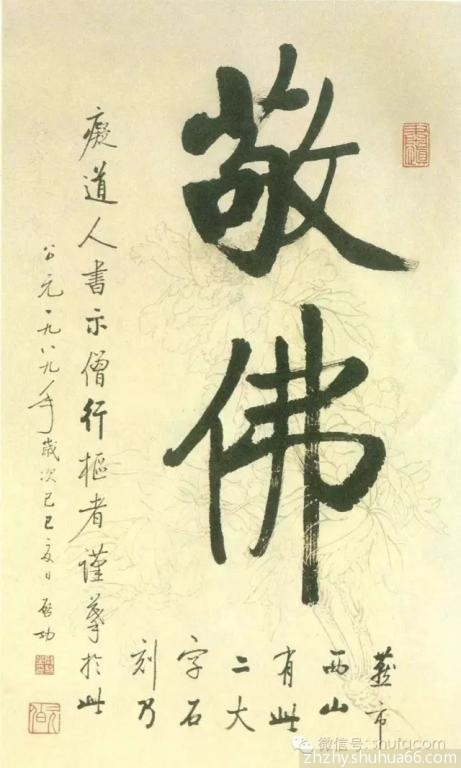 敬佛
燕市
西山
有此
二大
字石
刻乃
癡道人書示僧行樞者謹摹於此
公元一九八九年歲次己巳夏日啟功
微信号: shufacom
zhzhy.shuhua66.com